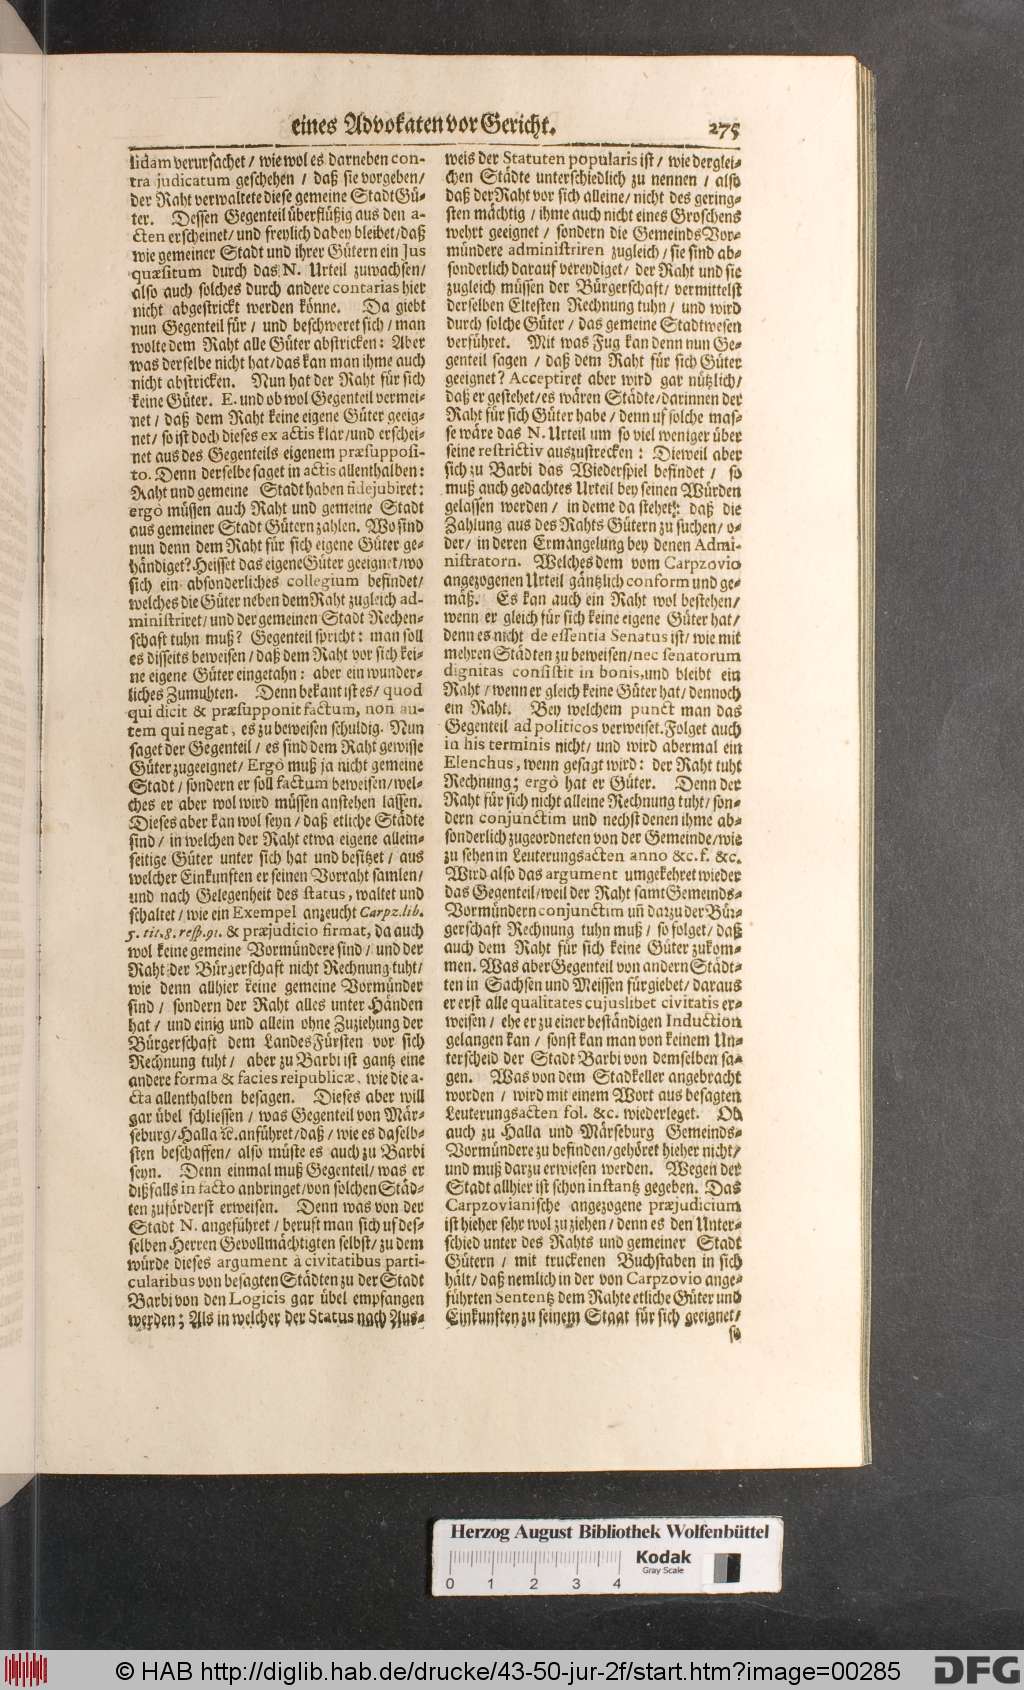 eines Advokaten vor Gericht.
275
lidam verursachet / wie wol es darneben con-
tra judicatum geschehen / daß sie vorgeben /
der Raht verwaltete diese gemeine Stadt Gü-
ter. Dessen Gegenteil überflüßig aus den a-
cten erscheinet / und freylich dabey bleibet / daß
wie gemeiner Stadt und ihrer Gütern ein Jus
quæsitum durch das N. Urteil zuwachsen /
also auch solches durch andere contarias hier
nicht abgestrickt werden könne. Da giebt
nun Gegenteil für / und beschweret sich / man
wolte dem Raht alle Güter abstricken: Aber
was derselbe nicht hat / das kan man ihme auch
nicht abstricken. Nun hat der Raht für sich
keine Güter. E. und ob wol Gegenteil vermei-
net / daß dem Raht keine eigene Güter geeig-
net / so ist doch dieses ex actis klar / und erschei-
net aus des Gegenteils eigenem præsupposi-
to. Denn derselbe saget in actis allenthalben:
Raht und gemeine Stadt haben fidejubiret:
ergò müssen auch Raht und gemeine Stadt
aus gemeiner Stadt Gütern zahlen. Wo sind
nun denn dem Raht für sich eigene Güter ge-
händiget? Heisset das eigene Güter geeignet / wo
sich ein absonderliches collegium befindet /
welches die Güter neben dem Raht zugleich ad-
ministriret / und der gemeinen Stadt Rechen-
schaft tuhn muß? Gegenteil spricht: man soll
es disseits beweisen / daß dem Raht vor sich kei-
ne eigene Güter eingetahn: aber ein wunder-
liches Zumuhten. Denn bekant ist es / quod
qui dicit & præsupponit factum, non au-
tem qui negat, es zu beweisen schuldig. Nun
saget der Gegenteil / es sind dem Raht gewisse
Güter zugeeignet / Ergò muß ja nicht gemeine
Stadt / sondern er soll factum beweisen / wel-
ches er aber wol wird müssen anstehen lassen.
Dieses aber kan wol seyn / daß etliche Städte
sind / in welchen der Raht etwa eigene allein-
seitige Güter unter sich hat und besitzet / aus
welcher Einkunften er seinen Vorraht samlen /
und nach Gelegenheit des status, waltet und
schaltet / wie ein Exempel anzeucht Carpz. lib.
5. tit. 8. resp. 91. & præjudicio firmat, da auch
wol keine gemeine Vormündere sind / und der
Raht der Bürgerschaft nicht Rechnung tuht /
wie denn allhier keine gemeine Vormünder
sind / sondern der Raht alles unter Händen
hat / und einig und allein ohne Zuziehung der
Bürgerschaft dem LandesFürsten vor sich
Rechnung tuht / aber zu Barbi ist gantz eine
andere forma & facies reipublicæ, wie die a-
cta allenthalben besagen. Dieses aber will
gar übel schliessen / was Gegenteil von Mär-
seburg / Halla &c. anführet / daß / wie es daselb-
sten beschaffen / also müste es auch zu Barbi
seyn. Denn einmal muß Gegenteil / was er
dißfalls in facto anbringet / von solchen Städ-
ten zuförderst erweisen. Denn was von der
Stadt N. angeführet / beruft man sich uf des-
selben Herren Gevollmächtigten selbst / zu dem
würde dieses argument à civitatibus parti-
cularibus von besagten Städten zu der Stadt
Barbi von den Logicis gar übel empfangen
werden; Als in welcher der Status nach Aus-
weis der Statuten popularis ist / wie derglei-
chen Städte unterschiedlich zu nennen / also
daß der Raht vor sich alleine / nicht des gering-
sten mächtig / ihme auch nicht eines Groschens
wehrt geeignet / sondern die Gemeinds Vor-
mündere administriren zugleich / sie sind ab-
sonderlich darauf vereydiget / der Raht und sie
zugleich müssen der Bürgerschaft / vermittelst
derselben Eltesten Rechnung tuhn / und wird
durch solche Güter / das gemeine Stadtwesen
verführet. Mit was Fug kan denn nun Ge-
genteil sagen / daß dem Raht für sich Güter
geeignet? Acceptiret aber wird gar nützlich /
daß er gestehet / es wären Städte / darinnen der
Raht für sich Güter habe / denn uf solche mas-
se wäre das N. Urteil um so viel weniger über
seine restrictiv auszustrecken: Dieweil aber
sich zu Barbi das Wiederspiel befindet / so
muß auch gedachtes Urteil bey seinen Würden
gelassen werden / in deme da stehet: daß die
Zahlung aus des Rahts Gütern zu suchen / o-
der / in deren Ermangelung bey denen Admi-
nistratorn. Welches dem vom Carpzovio
angezogenen Urteil gäntzlich conform und ge-
mäß. Es kan auch ein Raht wol bestehen /
wenn er gleich für sich keine eigene Güter hat /
denn es nicht de essentia Senatus ist / wie mit
mehren Städten zu beweisen / nec senatorum
dignitas consistit in bonis, und bleibt ein
Raht / wenn er gleich keine Güter hat / dennoch
ein Raht. Bey welchem punct man das
Gegenteil ad politicos verweiset. Folget auch
in his terminis nicht / und wird abermal ein
Elenchus, wenn gesagt wird: der Raht tuht
Rechnung; ergò hat er Güter. Denn der
Raht für sich nicht alleine Rechnung tuht / son-
dern conjunctim und nechst denen ihme ab-
sonderlich zugeordneten von der Gemeinde / wie
zu sehen in Leuterungsacten anno &c. f. &c.
Wird also das argument umgekehret wieder
das Gegenteil / weil der Raht samt Gemeinds-
Vormündern conjunctim uñ darzu der Bür-
gerschaft Rechnung tuhn muß / so folget / daß
auch dem Raht für sich keine Güter zukom-
men. Was aber Gegenteil von andern Städ-
ten in Sachsen und Meissen fürgiebet / daraus
er erst alle qualitates cujuslibet civitatis er-
weisen / ehe er zu einer beständigen Induction
gelangen kan / sonst kan man von keinem Un-
terscheid der Stadt Barbi von demselben sa-
gen. Was von dem Stadkeller angebracht
worden / wird mit einem Wort aus besagten
Leuterungsacten fol. &c. wiederleget. Ob
auch zu Halla und Märseburg Gemeinds-
Vormündere zu befinden / gehöret hieher nicht /
und muß darzu erwiesen werden. Wegen der
Stadt allhier ist schon instantz gegeben. Das
Carpzovianische angezogene præjudicium
ist hieher sehr wol zu ziehen / denn es den Unter-
schied unter des Rahts und gemeiner Stadt
Gütern / mit truckenen Buchstaben in sich
hält / daß nemlich in der von Carpzovio ange-
führten Sententz dem Rahte etliche Güter und
Einkunften zu seinem Staat für sich geeignet /
so
Herzog August Bibliothek Wolfenbüttel
Kodak
Gray Scale
0 1 2 3 4
© HAB http://diglib.hab.de/drucke/43-50-jur-2f/start.htm?image=00285
DFG